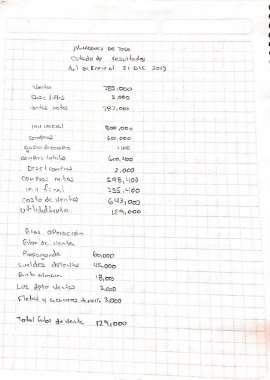 Estado de resultados
del 01 Enero al 31 DIC 2013
Ventas 785,000
Desc s/vtas 3,000
Ventas netas 782,000
Inv inicial 800,000
Compras 600,000
gastos de compra 400
compras totales 600,400
Desc s/compras 2,000
Compras netas 598,400
Inv. final 755,400
Costo de ventas 643,000
Utilidad bruta 139,000
Gtos Operación
Gtos de venta
Propaganda 60,000
sueldos dpto vtas 45,000
Renta almacen 18,000
Luz dpto ventas 3,000
Fletes y acarreos 3,000
Total Gtos de venta 129,000